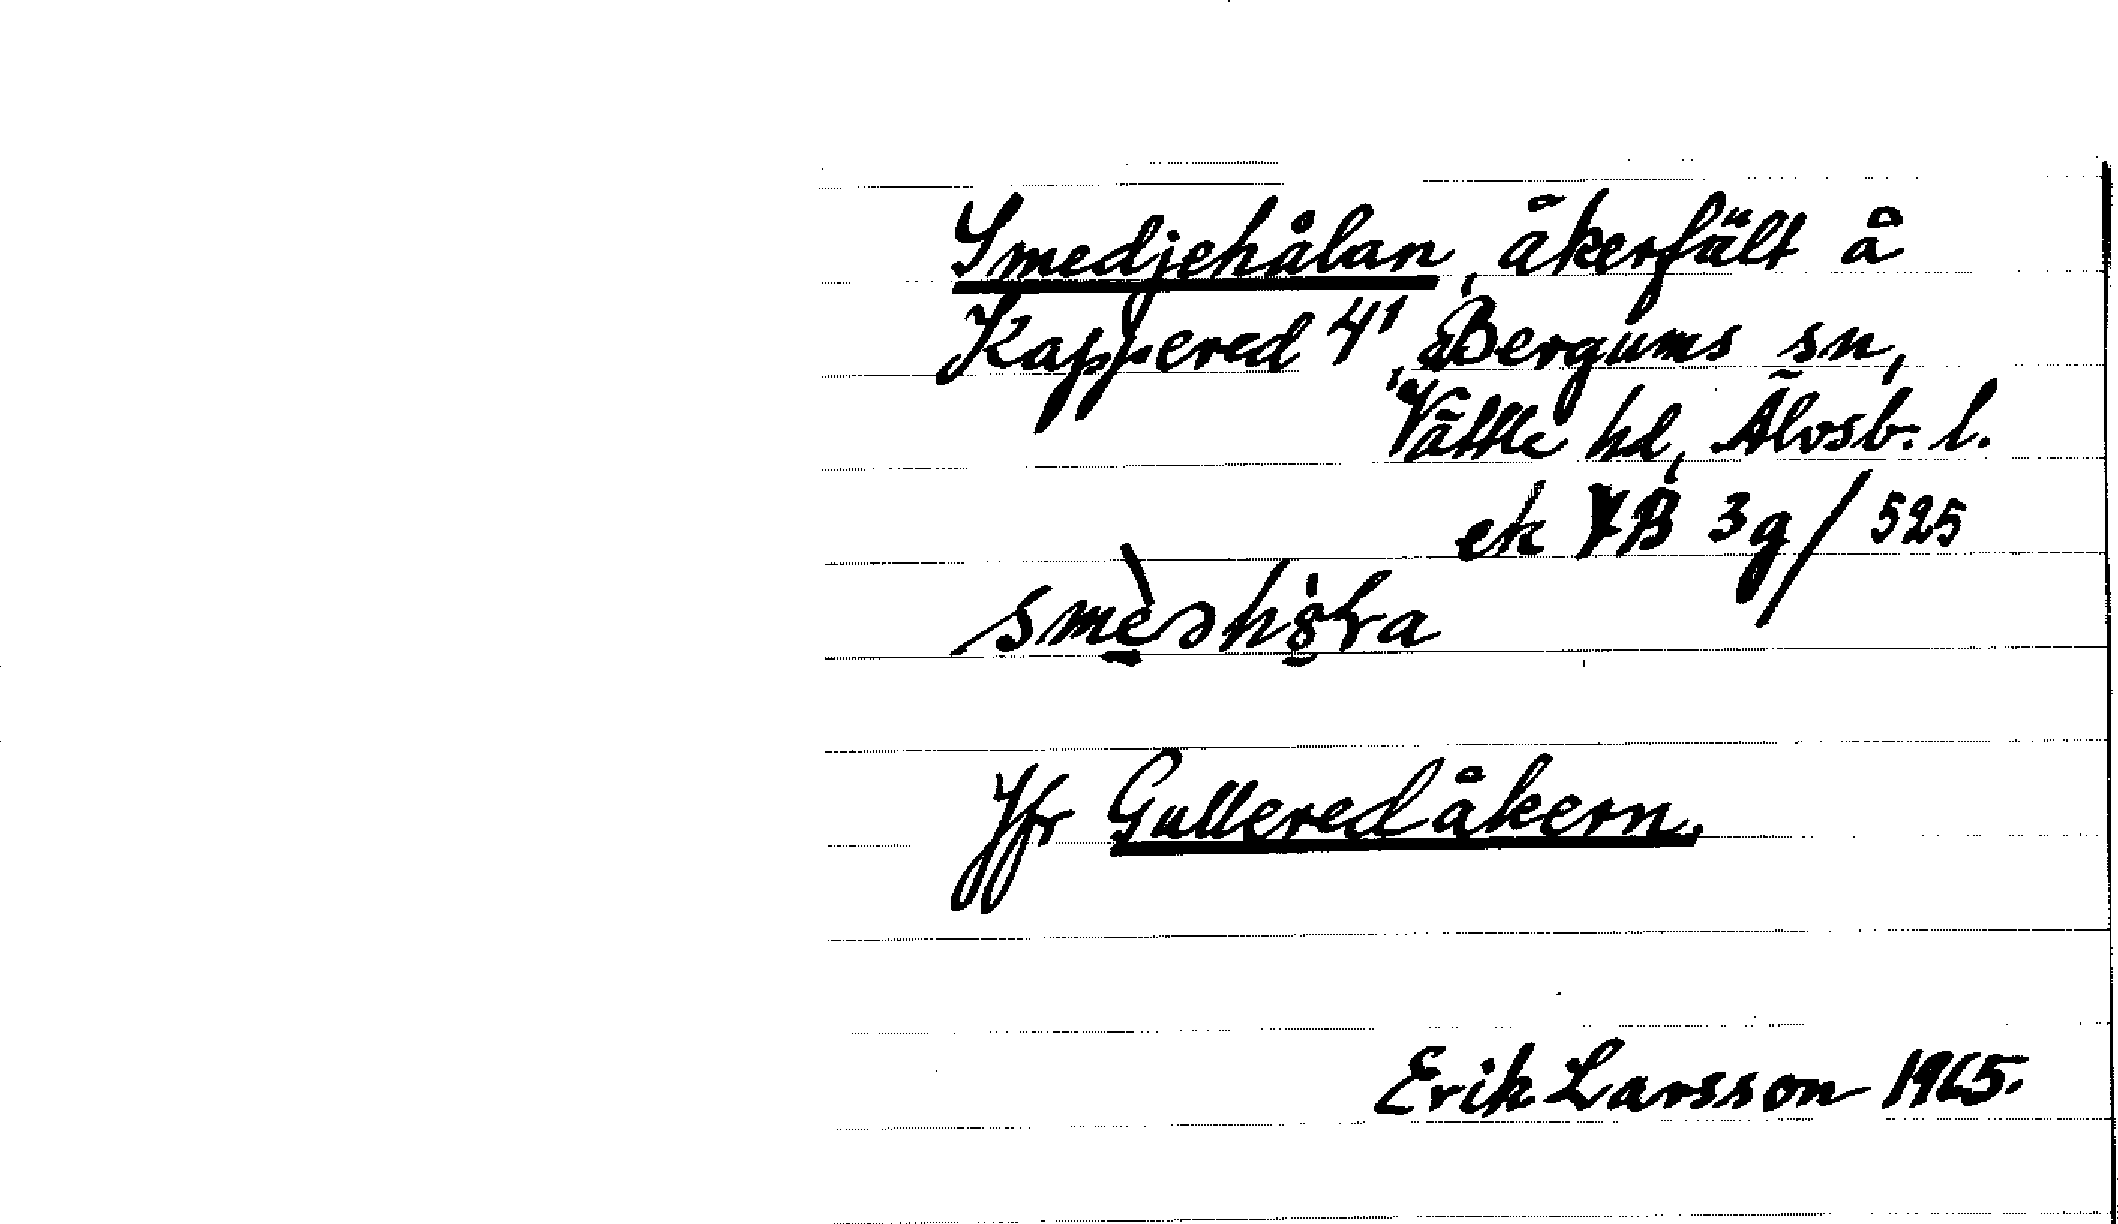 Smedjehålan, åkerfält å
Kappered 4¹, Bergums sn,
Vättle hd, Älvsb. l.
ek 7B 3g/525
smè̱əhö̱ɽa
Jfr Gulleredåkern.
Erik Larsson 1965.